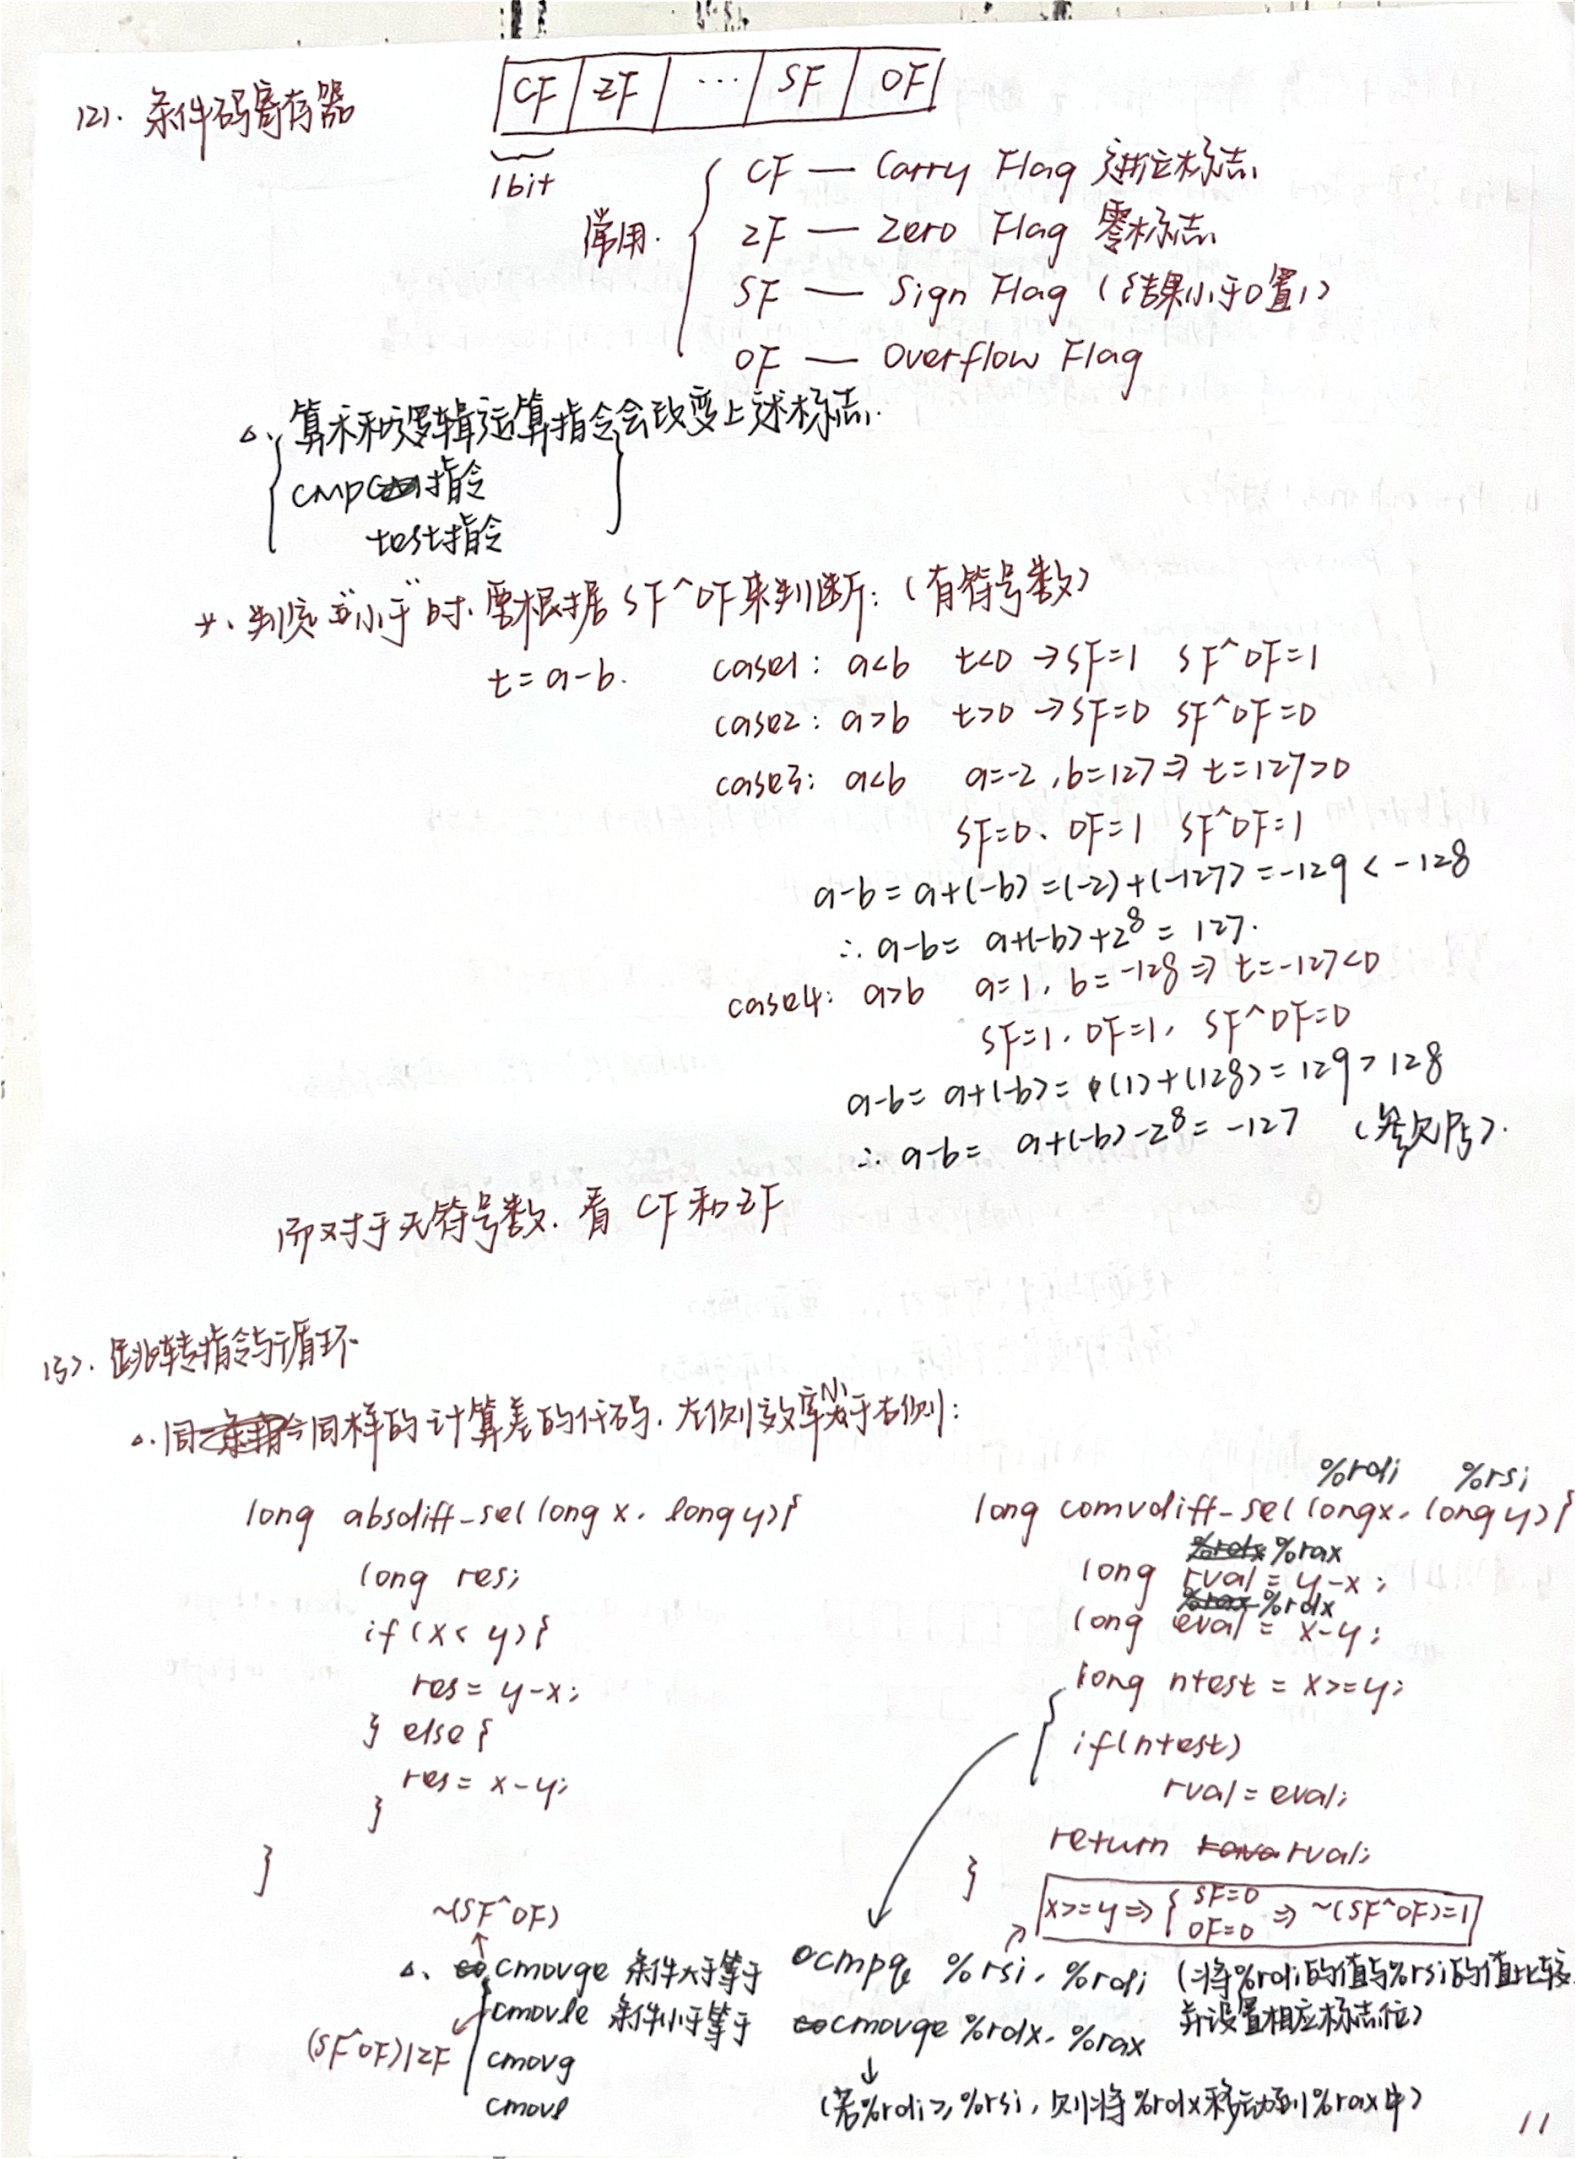 (2). 条件码寄存器
CF ZF ... SF OF
1bit
常用.
CF — Carry Flag 进位标志
ZF — Zero Flag 零标志
SF — Sign Flag (结果小于0置1)
OF — Overflow Flag
△. 算术和逻辑运算指令会改变上述标志.
cmp 指令
test指令
判定“小于”时. 要根据 SF^OF来判断: (有符号数)
t = a-b.
case1: a<b t<0 → SF=1 SF^OF=1
case2: a>b t>0 → SF=0 SF^OF=0
case3: a<b a=-2, b=127 ⇒ t=127>0
SF=0. OF=1 SF^OF=1
a-b = a+(-b) = (-2)+(-127) = -129 < -128
∴ a-b = a+(-b)+2^8 = 127.
case4: a>b a=1, b=-128 ⇒ t=-127<0
SF=1. OF=1, SF^OF=0
a-b = a+(-b) = (1)+(128) = 129 > 128
∴ a-b = a+(-b)-2^8 = -127
而对于无符号数. 看 CF 和 ZF
(3). 跳转指令与循环
△. 同样的计算差的代码. 左侧效率小于右侧:
%rdi %rsi
long absdiff-se(long x, long y){
long res;
if (x < y){
res = y-x;
} else {
res = x-y;
}
}
long comvdiff-se(long x, long y){
%rax
long rval = y-x;
%rdx
long eval = x-y;
long ntest = x>=y;
if(ntest)
rval = eval;
return rval;
}
x>=y ⇒ { SF=0 OF=0 ⇒ ~(SF^OF)=1
~(SF^OF)
△. cmovge 条件大于等于
cmovle 条件小于等于
(SF^OF)|ZF
cmovg
cmovl
cmpq %rsi, %rdi (将%rdi的值与%rsi的值比较
并设置相应标志位)
cmovge %rdx, %rax
(若%rdi>=%rsi, 则将%rdx移动到%rax中)
11